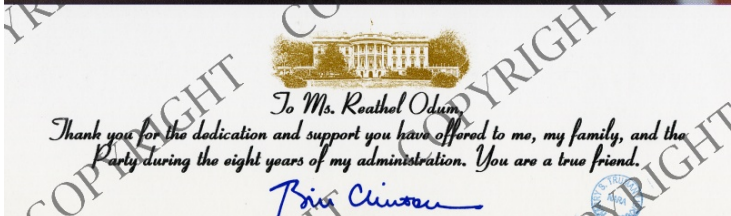 To Ms. Reathel Odum,
Thank you for the dedication and support you have offered to me, my family, and the
Party during the eight years of my administration. You are a true friend.
Bill Clinton
COPYRIGHT
COPYRIGHT
COPYRIGHT
NARA